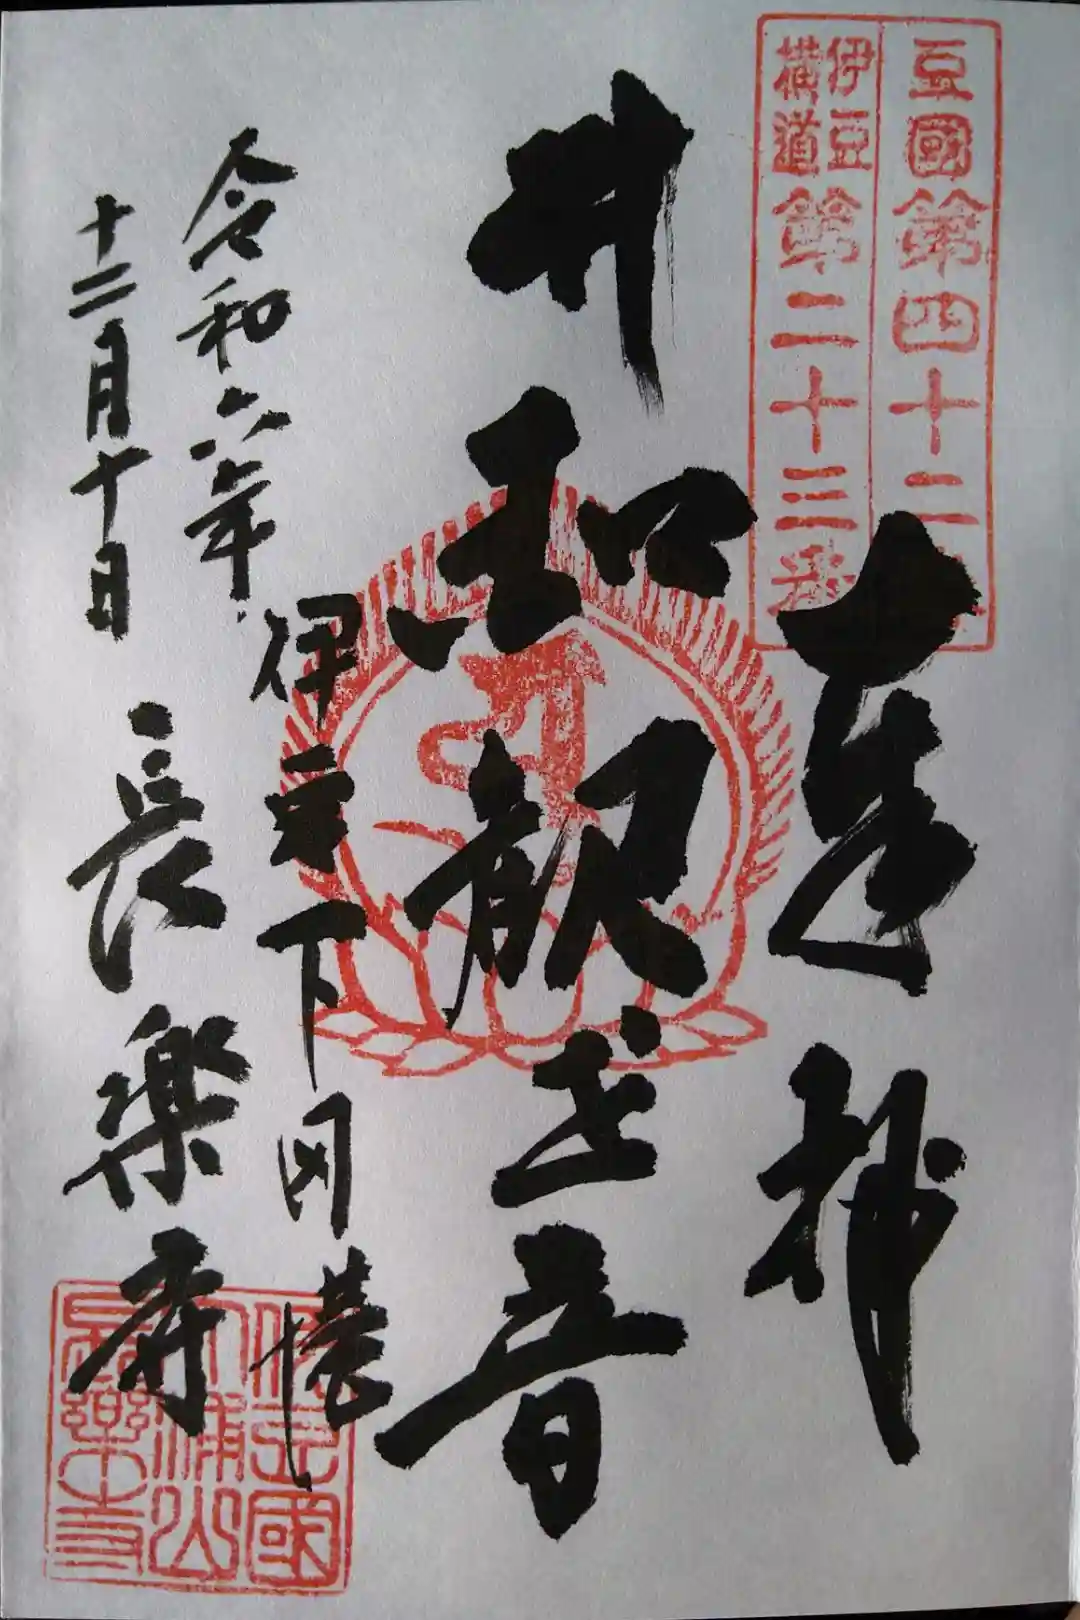 豆國第四十二番
伊豆横道第二十三番
奉拝
觀世音
伊豆下田
令和六年
十二月十日
長樂寺
伊豆國
大浦山
長樂寺